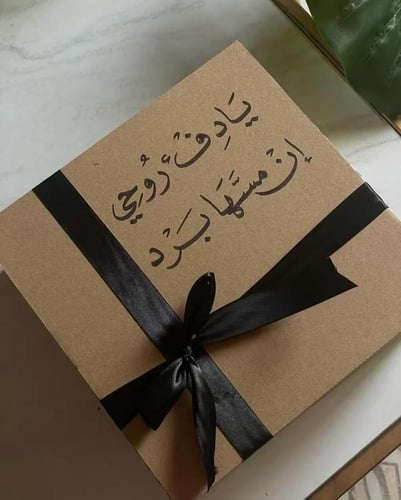 يَا دِفْءْ رُوُحِي
إنْ مسَّهَا بَرْد